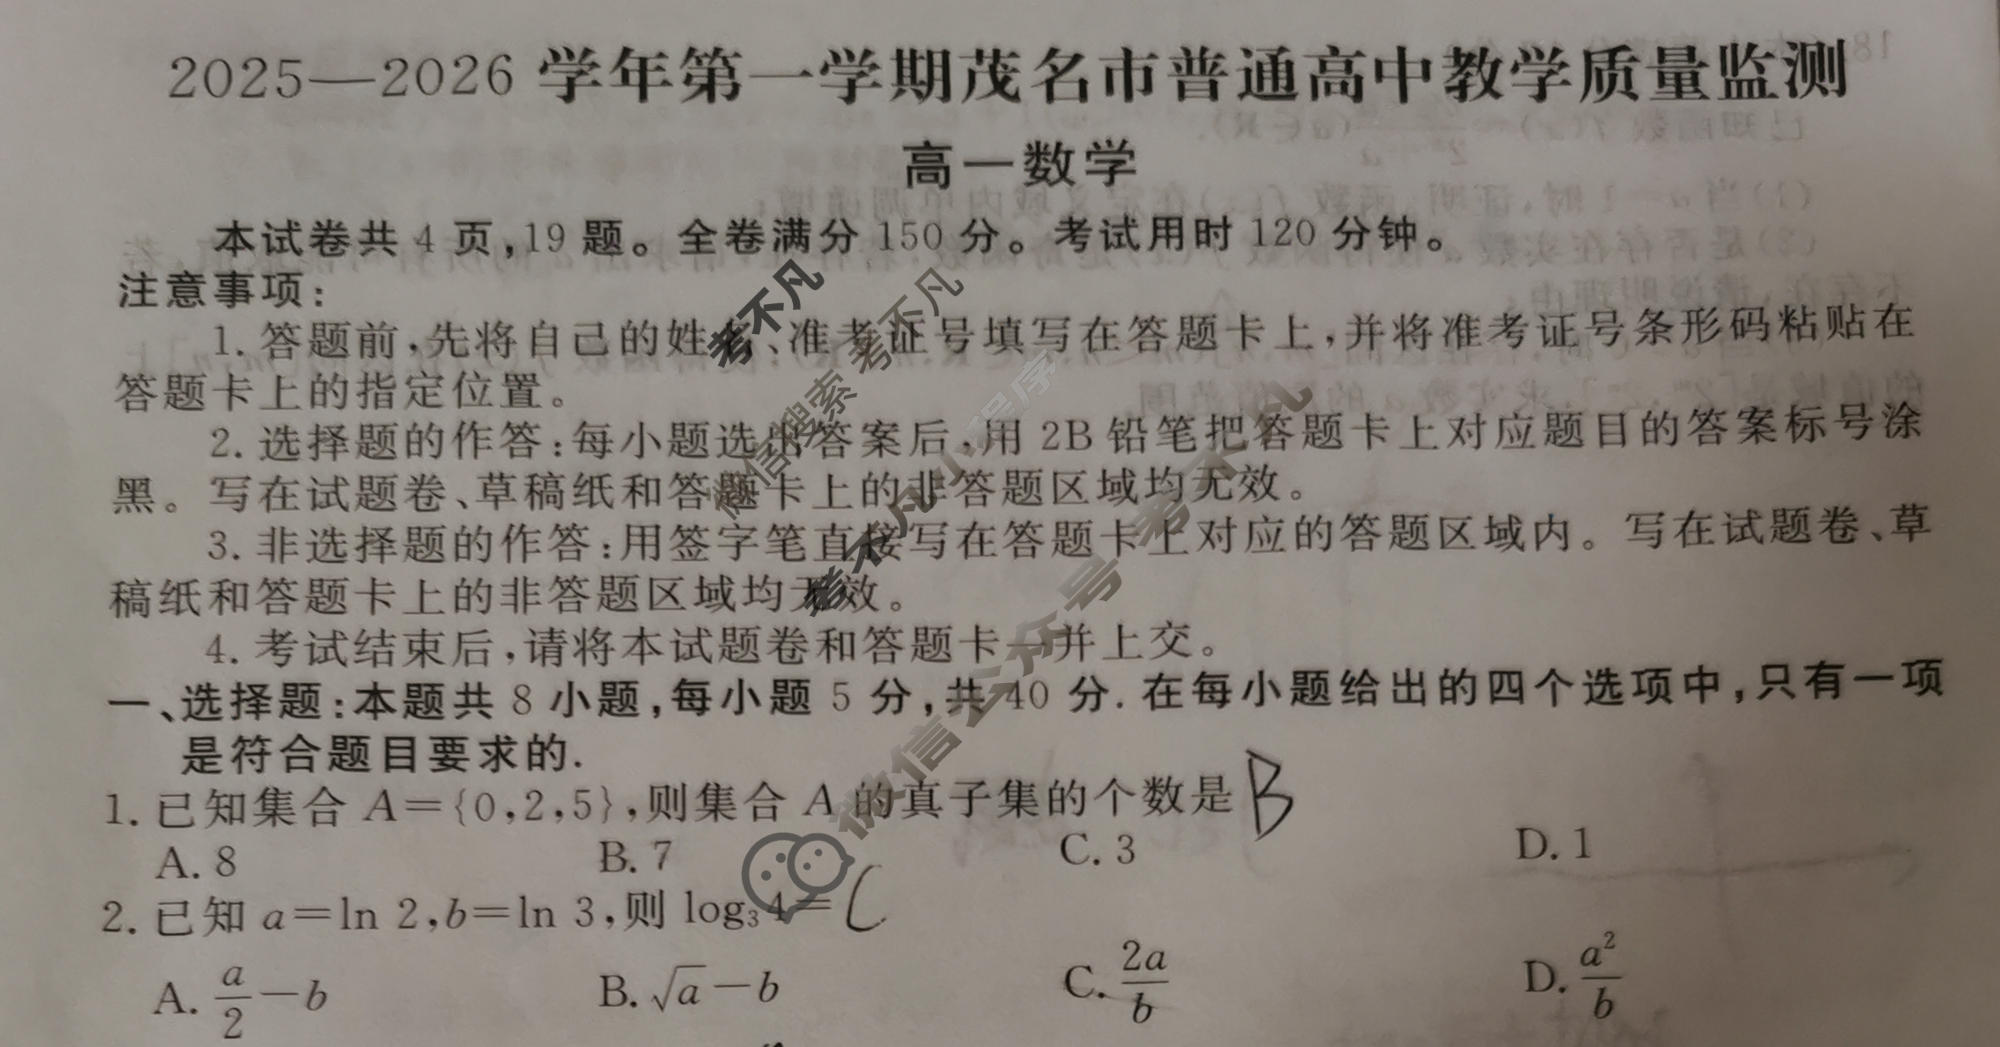 2025—2026 学年第一学期茂名市普通高中教学质量监测
高一数学
本试卷共 4 页,19 题。全卷满分 150 分。考试用时 120 分钟。
注意事项:
1. 答题前,先将自己的姓名、准考证号填写在答题卡上,并将准考证号条形码粘贴在
答题卡上的指定位置。
2. 选择题的作答:每小题选出答案后,用 2B 铅笔把答题卡上对应题目的答案标号涂
黑。写在试题卷、草稿纸和答题卡上的非答题区域均无效。
3. 非选择题的作答:用签字笔直接写在答题卡上对应的答题区域内。写在试题卷、草
稿纸和答题卡上的非答题区域均无效。
4. 考试结束后,请将本试题卷和答题卡一并上交。
一、选择题:本题共 8 小题,每小题 5 分,共 40 分. 在每小题给出的四个选项中,只有一项
是符合题目要求的.
1. 已知集合 A={0,2,5},则集合 A 的真子集的个数是 B
A. 8 B. 7 C. 3 D. 1
2. 已知 a=ln 2,b=ln 3,则 log₃4= C
A. a/2−b B. √a−b C. 2a/b D. a²/b
考不凡
微信搜索 考不凡
考不凡小程序
微信公众号 考不凡